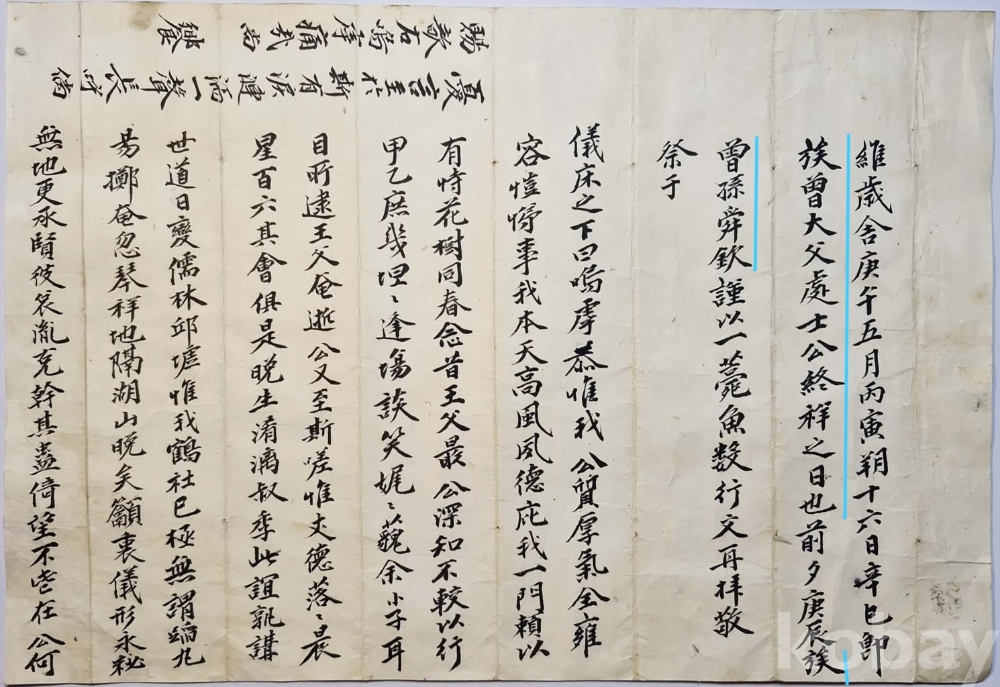 維歲舍庚午五月丙寅朔十六日辛巳卽
族曾大父處士公終祥之日也前夕庚辰族
曾孫舜欽謹以一薧魚數行文再拜敬
祭于
儀床之下曰嗚虖恭惟我公質厚氣全雍
容愷悌事我本天高風夙德庇我一門賴以
有恃花樹同春念昔王父最公深知不較以行
甲乙庶幾埋〻逢場談笑娓〻藐余小子耳
目所逮王父奄逝公又至斯嗟惟丈德落〻晨
星百六其會俱是晩生淆漓叔季此誼孰講
世道日變儒林邱墟惟我鶴社已極無謂端九
昜擲奄忽琴祥地隔湖山晩矣籲衷儀形永秘
無地更承賢彼哀胤克幹其蠱倚望不啻在公何
憂言至於斯有淚漣洒一聲長呼倘
賜歆右嗚虖痛哉尚饗
kobay